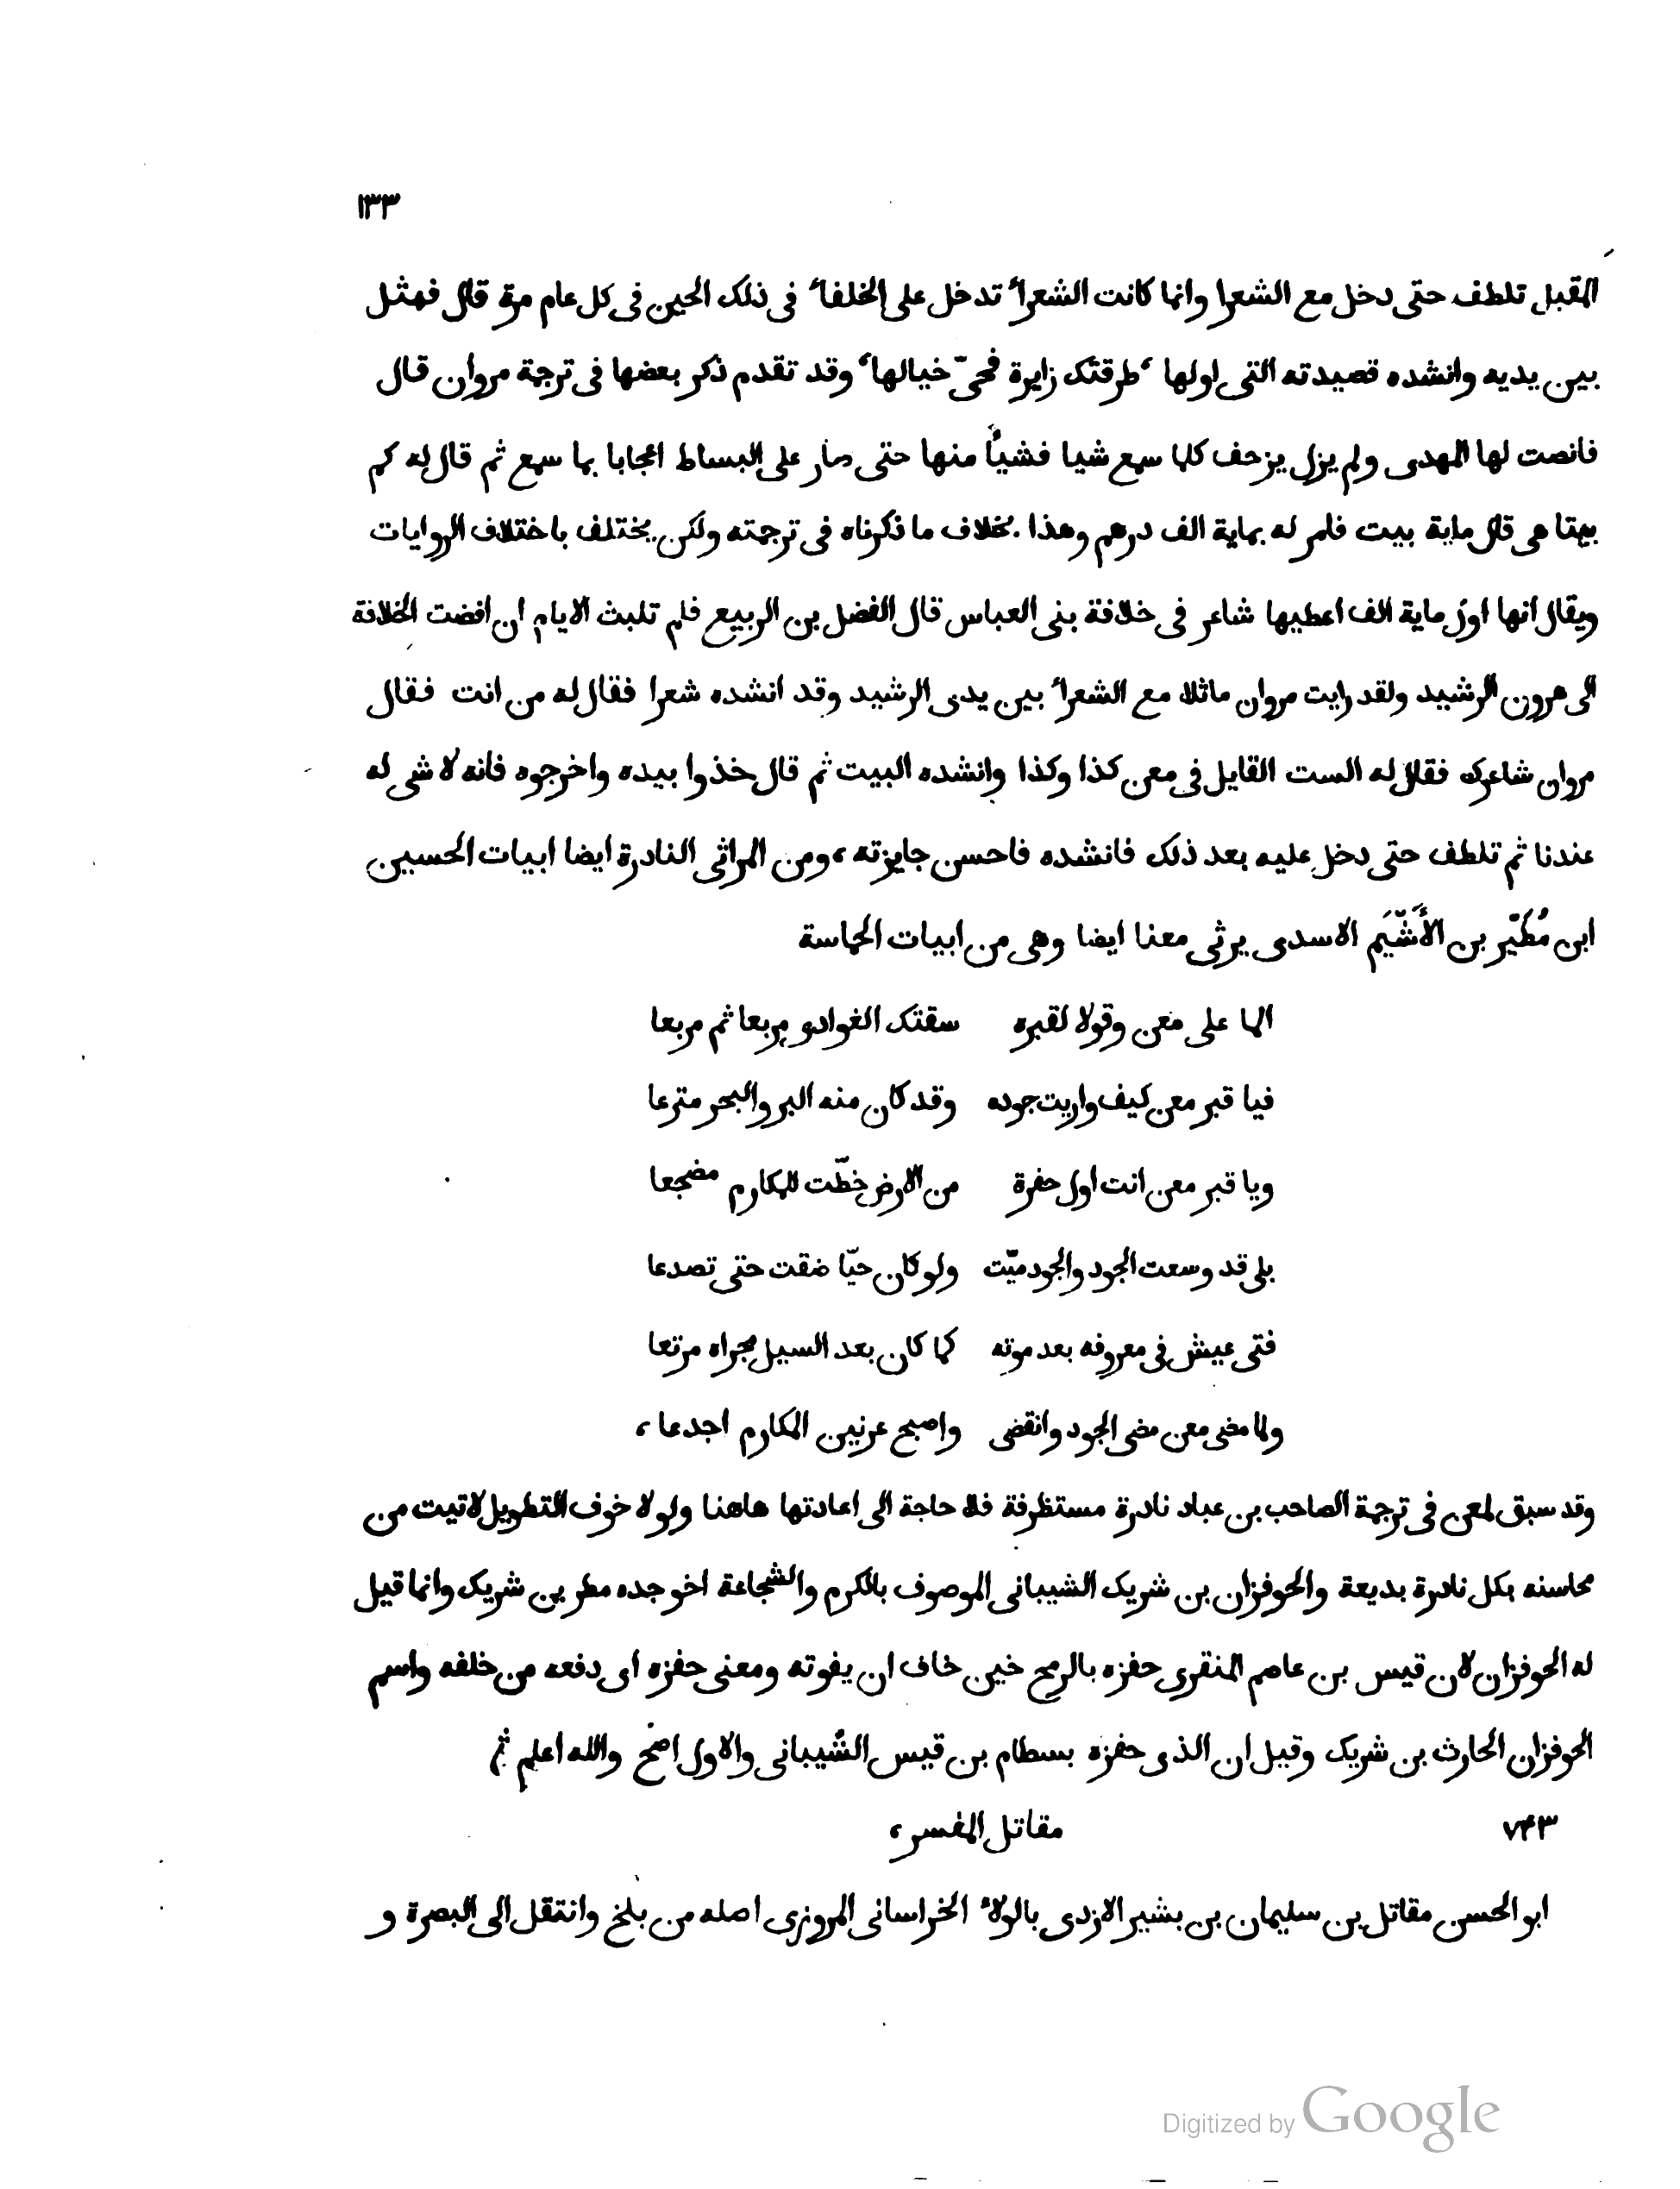 ١٣٣
المقبل تلطف حتى دخل مع الشعرا وانما كانت الشعراء تدخل على الخلفاء فى ذلك الحين فى كل عام مرة قال فمثل
بين يديه وانشده قصيدته التى اولها ، طرقتك زايرة فحىّ خيالها ، وقد تقدم ذكر بعضها فى ترجمة مروان قال
فانصت لها المهدى ولم يزل يزحف كلما سمع شيا فشيأً منها حتى صار على البساط اعجابا بما سمع ثم قال له كم
بيتا هى قال ماية بيت فامر له بماية الف درهم وهذا بخلاف ما ذكرناه فى ترجمته ولكن يختلف باختلاف الروايات
ويقال انها اول ماية الف اعطيها شاعر فى خلافة بنى العباس قال الفضل بن الربيع فلم تلبث الايام ان افضت الخلافة
الى هرون الرشيد ولقد رايت مروان ماثلا مع الشعراء بين يدى الرشيد وقد انشده شعرا فقال له من انت فقال
مروان شاعرك فقال له الست القايل فى معن كذا وكذا وانشده البيت ثم قال خذوا بيده واخرجوه فانه لا شى له
عندنا ثم تلطف حتى دخل عليه بعد ذلك فانشده فاحسن جايزته ، ومن المراثى النادرة ايضا ابيات الحسين
ابن مُطَيّر بن الأَشَّيَم الاسدى يرثى معنا ايضا وهى من ابيات الحماسة
الما على معن وقولا لقبره سقتك الغوادى مربعا ثم مربعا
فيا قبر معن كيف واريت جوده وقد كان منه البر والبحر مترعا
ويا قبر معن انت اول حفرة من الارض خطّت للمكارم مضجعا
بلى قد وسعت الجود والجود ميّت ولو كان حيّا ضقت حتى تصدعا
فتى عيش فى معروفه بعد موته كما كان بعد السيل مجراه مرتعا
ولما مضى معن مضى الجود وانقضى واصبح عرنين المكارم اجدعا ،
وقد سبق لمعن فى ترجمة الصاحب بن عباد نادرة مستظرفة فلا حاجة الى اعادتها هاهنا ولولا خوف التطويل لاتيت من
محاسنه بكل نادرة بديعة والحوفزان بن شريك الشيبانى الموصوف بالكرم والشجاعة اخو جده مطر بن شريك وانما قيل
له الحوفزان لان قيس بن عاصم المنقرى حفزه بالرمح خين خاف ان يفوته ومعنى حفزه اى دفعه من خلفه واسم
الحوفزان الحارث بن شريك وقيل ان الذى حفزه بسطام بن قيس الشيبانى والاول اصح والله اعلم ثم
٧٤٣ مقاتل المفسر ،
ابو الحسن مقاتل بن سليمان بن بشير الازدى بالولاء الخراسانى المروزى اصله من بلخ وانتقل الى البصرة و
Digitized by Google